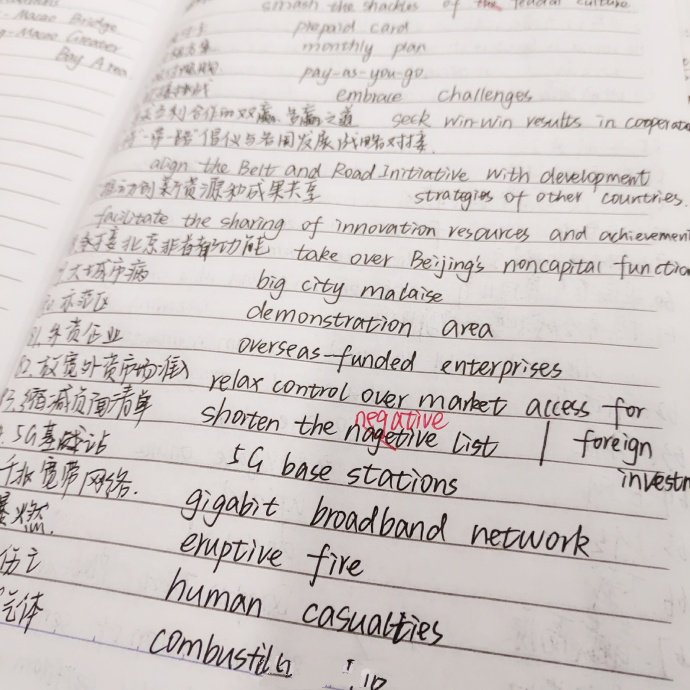 - Macao Bridge
-Macao Greater
Bay Area
smash the shackles of the feudal culture
prepaid card
monthly plan
pay-as-you-go
embrace challenges
互利合作的双赢、多赢之道 seek win-win results in
"一带一路"倡仪与各国发展战略对接.
align the Belt and Road Initiative with development
推动创新资源和成果共享 strategies of other countries.
facilitate the sharing of innovation resources and
北京非首都功能 take over Beijing's noncapital
大城市病 big city malaise
示范区 demonstration area
81.外资企业 overseas-funded enterprises
82.放宽外资市场准入 relax control over market access for
缩减负面清单 shorten the nagetive list | foreign
negative
5G基站 5G base stations
千兆宽带网络. gigabit broadband network
爆燃. eruptive fire
伤亡 human casualties
气体